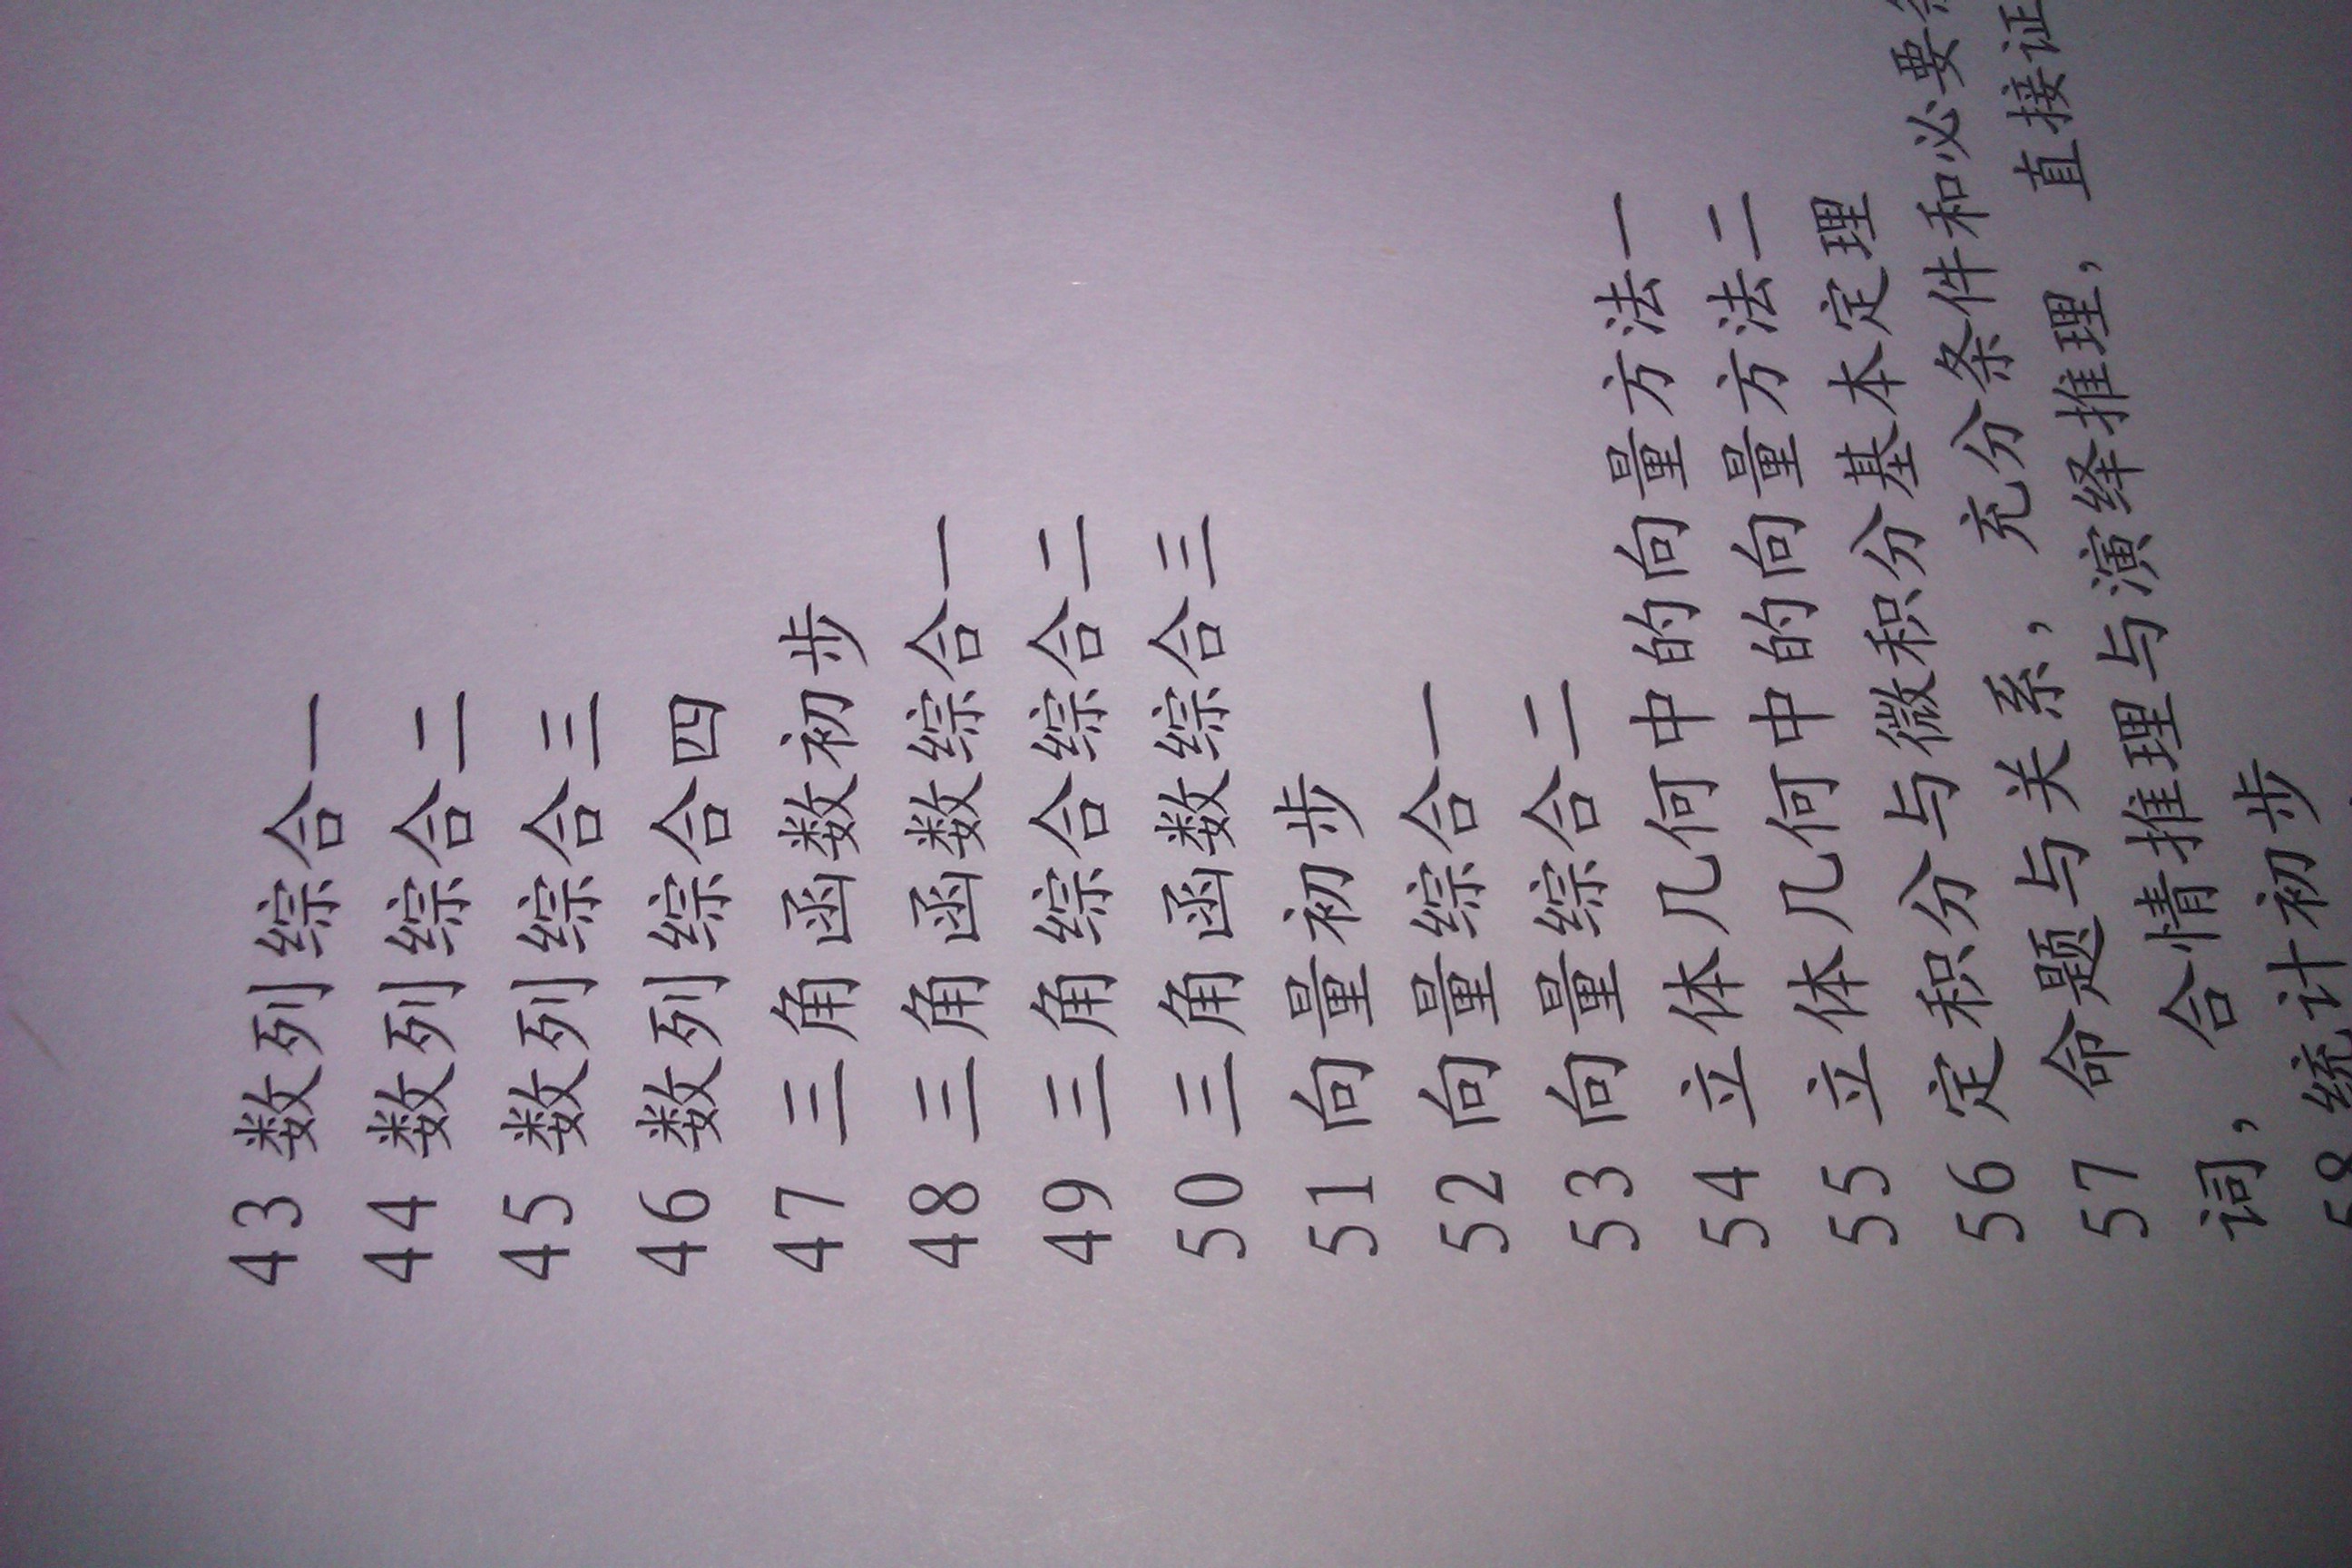 43 数列综合一
44 数列综合二
45 数列综合三
46 数列综合四
47 三角函数初步
48 三角函数综合一
49 三角综合综合二
50 三角函数综合三
51 向量初步
52 向量综合一
53 向量综合二
54 立体几何中的向量方法一
55 立体几何中的向量方法二
56 定积分与微积分基本定理
57 命题与关系，充分条件和必要条
词，合情推理与演绎推理，直接证
58 统计初步